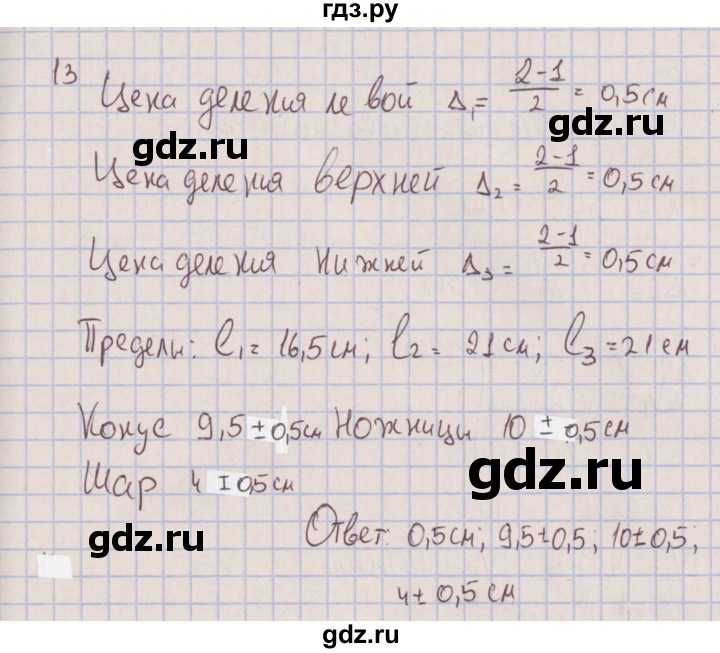 гдз.ру
13
Цена деления левой Δ₁ = (2-1)/2 = 0,5 см
gdz.ru
gdz.ru
Цена деления верхней Δ₂ = (2-1)/2 = 0,5 см
Цена деления нижней Δ₃ = (2-1)/2 = 0,5 см
Пределы: ℓ₁ = 16,5 см; ℓ₂ = 21 см; ℓ₃ = 21 см
Конус 9,5 ± 0,5 см Ножницы 10 ± 0,5 см
Шар 4 ± 0,5 см
gdz.ru
Ответ: 0,5 см; 9,5 ± 0,5; 10 ± 0,5;
gdz.ru
4 ± 0,5 см
gdz.ru